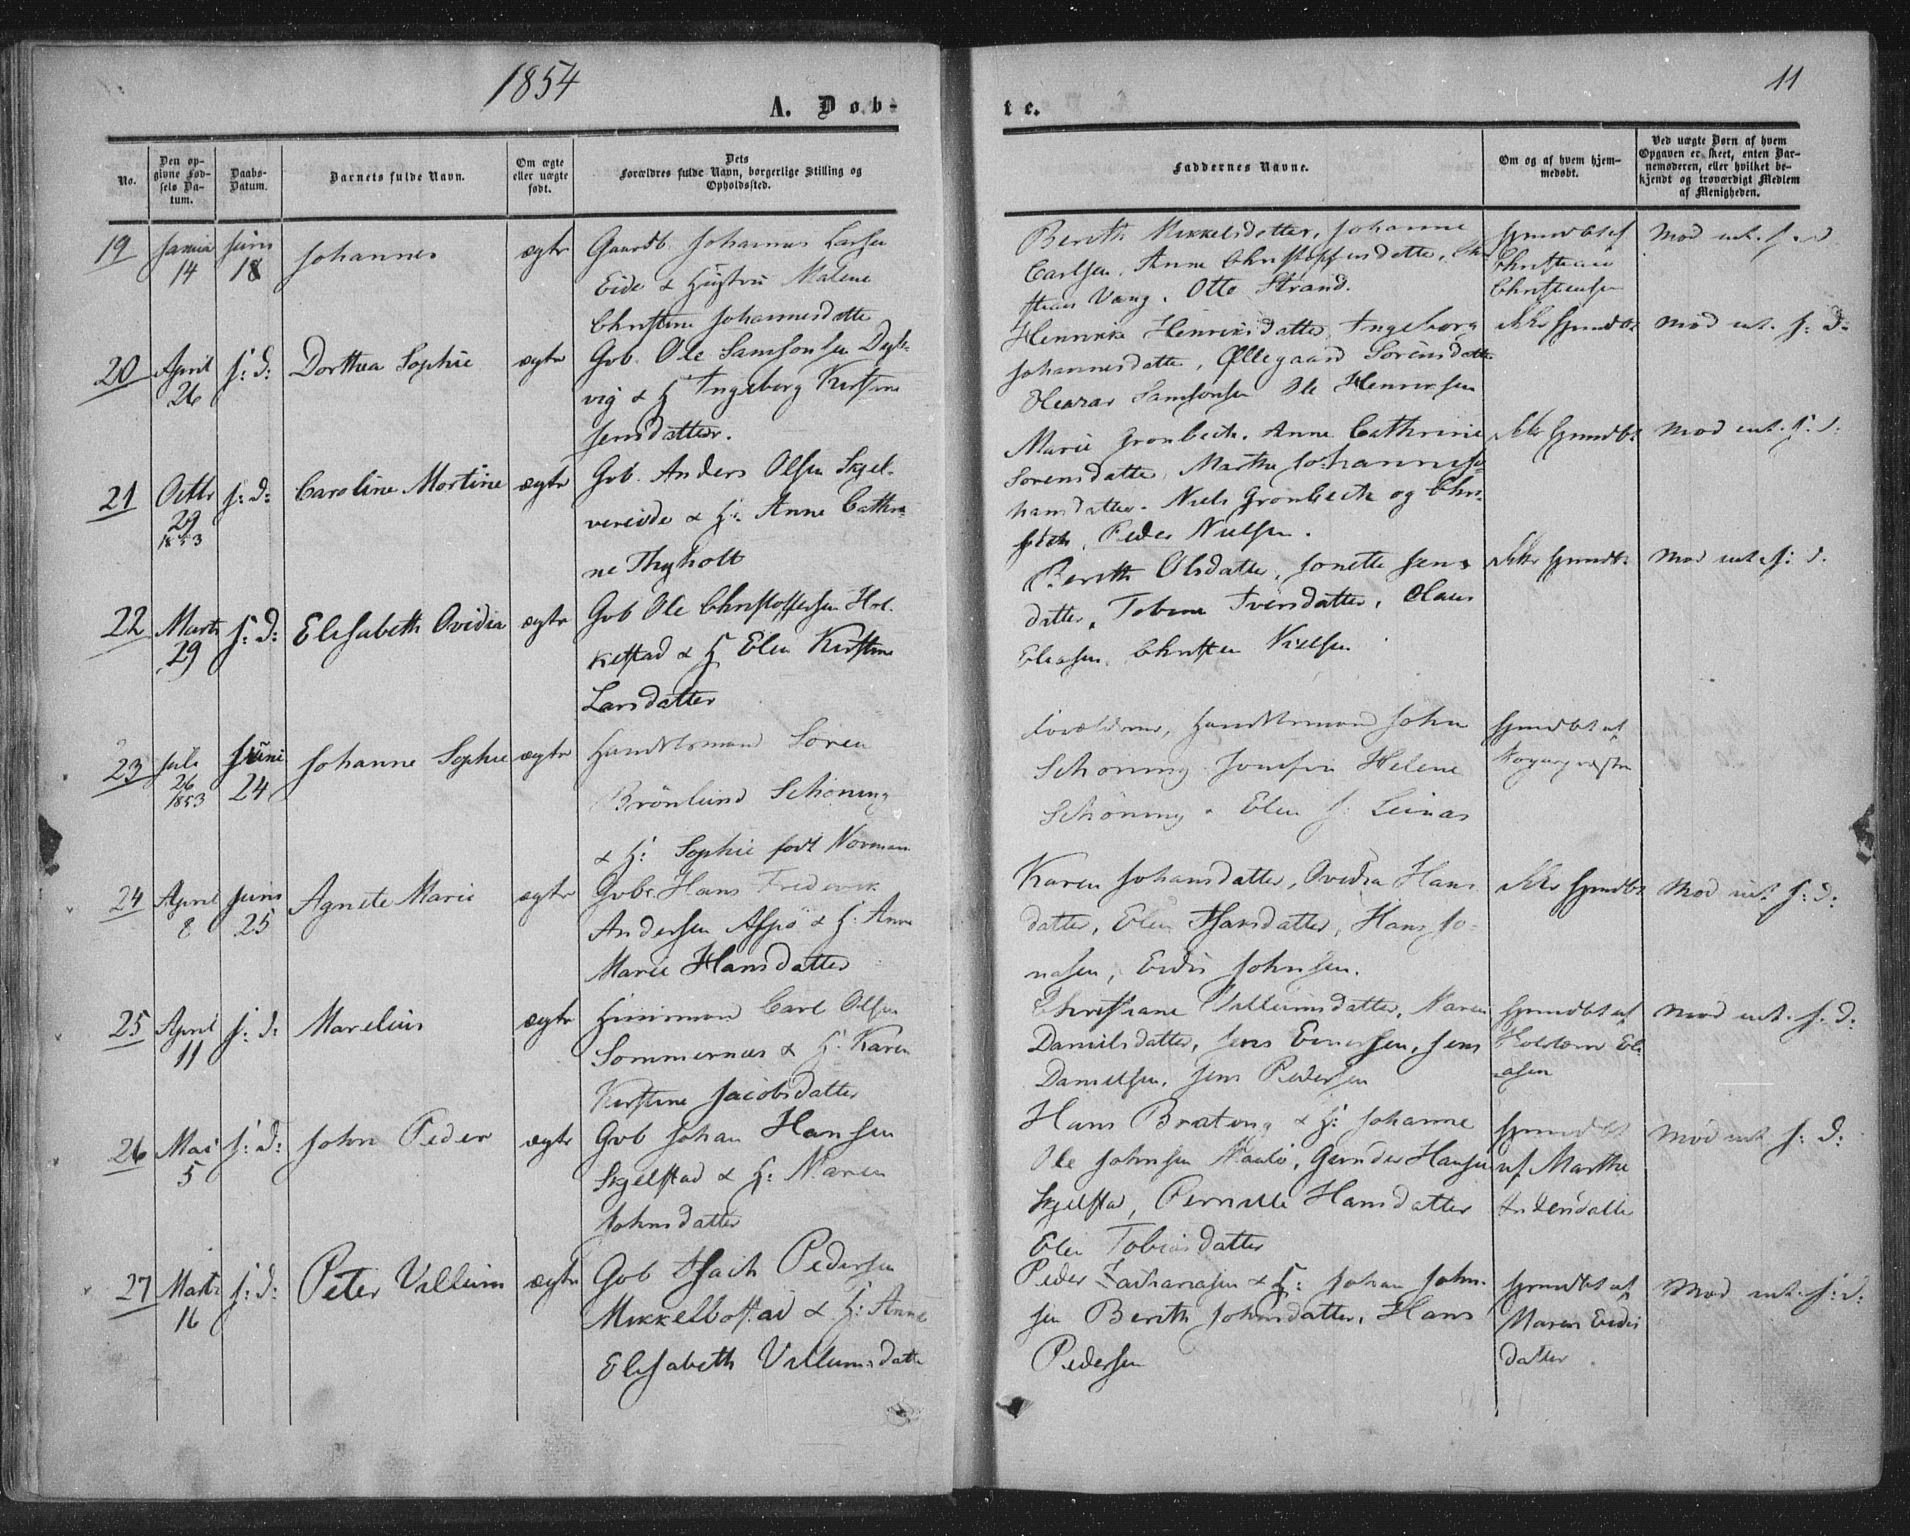 1854
A. Døb-
te.
11
No.
Den opgivne Fødsels Datum.
Daabs-Datum.
Barnets fulde Navn.
Om ægte eller uægte født.
Dets Forældres fulde Navn, borgerlige Stilling og Opholdssted.
Faddernes Navne.
Om og af hvem hjemmedøbt.
Ved uægte Børn af hvem Opgaven er skeet, enten Barnemoderen, eller hvilket bekjendt og troværdigt Medlem af Menigheden.
19 Januar 14 Juni 18 Johannes ægte Gaardb. Johannes Larsen
Eide & Hustru Malene
Christine Johannesdatte
Berith Mikkelsdatter, Johanne
Carlsen, Anne Christophersdatte,
Vang, Otto Strand.
hjmdbt af
Christiane
Christensen
Mod
20 April 26 s: d: Dorthea Sophie ægte Gvb. Ole Samsonsen
vig & H Ingeborg Kirstine
Jensdatter.
Henrikke Henriksdatter, Ingeborg
Johannesdatte, Ellegaard Sørensdatte
Samsonsen Ole Henriksen
Ikke hjmdbt
Mod s: d:
21 Octbr 29 1853 s: d: Caroline Martine ægte Gvb. Anders Olsen Skjel-
vereide & H: Anne Cathri-
ne Thyholt
Marie Grønbech, Anne Cathrine
Sørensdatte, Marthe
hansdatter, Niels Grønbech og
Peder Nielsen.
Ikke hjmdbt
Mod s: d:
22 Marts 29 s: d: Elisabeth Ovidia ægte Gvb Ole Christoffersen Hol-
kestad & H Elen Kirstine
Larsdatter
Berith Olsdatter, Jonette Jens
datter, Tobine Iversdatter, Olaus
Eliasen, Christen Nielsen
Ikke hjmdbt.
Mod s: d.
23 Juli 26 1853 Juni 24 Johanne Sophie ægte Handelsmand Sören
Brönlund Schöning
& H: Sophie født Norman
Forældrene, Handelsmand John
Schöning Josefin Helene
Schöning, Elen
hjmdbt af
24 April 8 Juni 25 Agnete Marie ægte Gvbr. Hans Frederik
Andersen Aspö & H. Anne
Marie Hansdatter
Karen Johansdatter, Ovedia Hans
datter, Elen Isaksdatter, Hans Jo-
nasen, Johnsen.
Ikke hjmdbt
Mod s: d:
25 April 11 s: d: Marelius ægte Huusmand Carl Olsen
Sommernæs & H: Karen
Kirstine Jacobsdatter
Christiane Villumsdatter, Maren
Danielsdatter, Jens Einersen, Jens
Danielsen, Jens Pedersen
hjmdbt af
Eli-
asen
Mod s. d:
26 Mai 5 s: d: John Peder ægte Gvb Johan Hansen
Skjelstad & H: Maren
Johnsdatter
Hans Brateng & H: Johanne
Ole Johnsen, Hansen
Skjelstad, Pernille Hansdatter
Elen Tobiasdatter
hjmdbt
af Marthe
Mod s: d:
27 Marts 16 s: d: Peter Villum ægte Gvb Isach Pedersen
Mikkelbostad & H: Anne
Elisabeth Villumsdatte
Peder Zachariasen & H: Johan John-
sen Berith Johnsdatter, Hans
Pedersen
hjmdbt af
Maren
datter
Mod s: d: